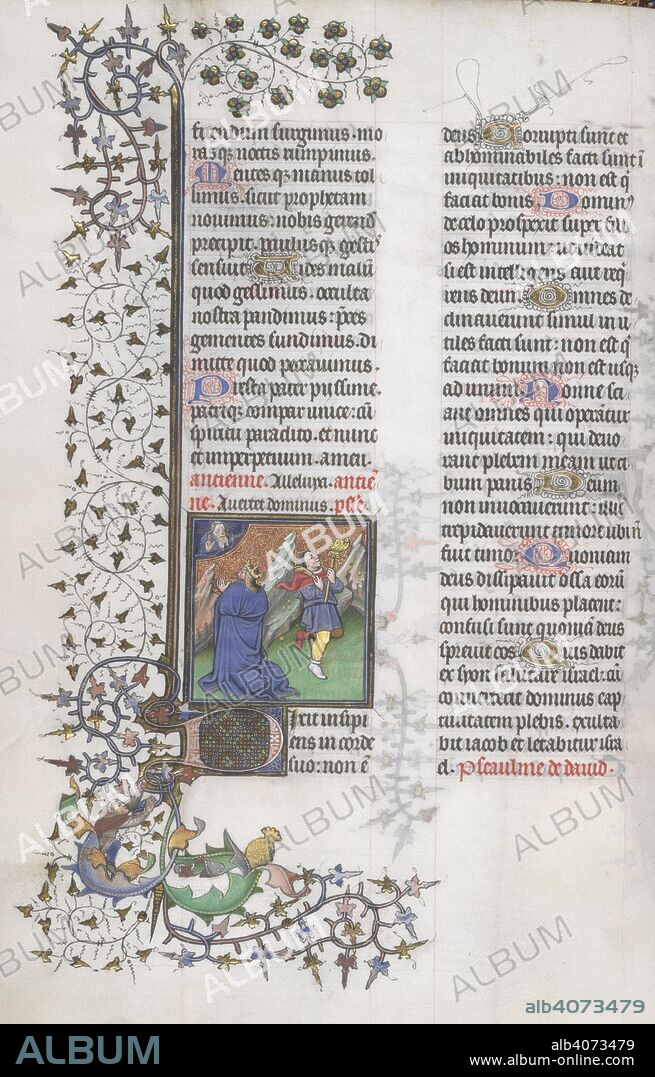 ferendum surgimus. mo
rasqꝫ noctis rumpimus.
Mentes qꝫ manus tol
limus. sicut prophetam
novimus: nobis gerend
precipit. paulusqꝫ gesti
sensuit Vides malū
quod gessimus: occulta
nostra pandimus: p̄ces
gementes fundimus. di
mitte quod peccavimus.
Presta pater pyssime.
patriqꝫ compar unice: cū
spiritu paradito. et nunc
et imperpetuum. amen.
ancienne. Alleluya. ancien
ne. Avertet dominus. ps.
Dixit insipi
ens in corde
suo: non ē
deus Corrupti sunt et
abhominabiles facti sunt ī
iniquitatibus: non est qͥ
faciat bonū Dominꝰ
de celo prospexit super fili
os hominum: ut videat
si est intelligens aut reqͥ
rens deum. Omnes de
clinaverunt simul inu
tiles facti sunt: non est qͥ
faciat bonum non est usqꝫ
ad unum. Nonne sci
ant omnes qui operātur
iniquitatem: qui devo
rant plebem meam ut ci
bum panis Deum
non invocaverunt: illic
trepidaverunt timore ubi nō
fuit timor Quoniam
deus dissipavit ossa eorū
qui hominibus placent:
confusi sunt quoniā deus
sprevit eos Quis dabit
ex syon salutare israel: cū
converterit dominus cap
tivitatem plebis. exulta
bit iacob et letabitur isra
el. Pseaulme de david.
alb4073479
ALBUM
alb4073479
www.album-online.com